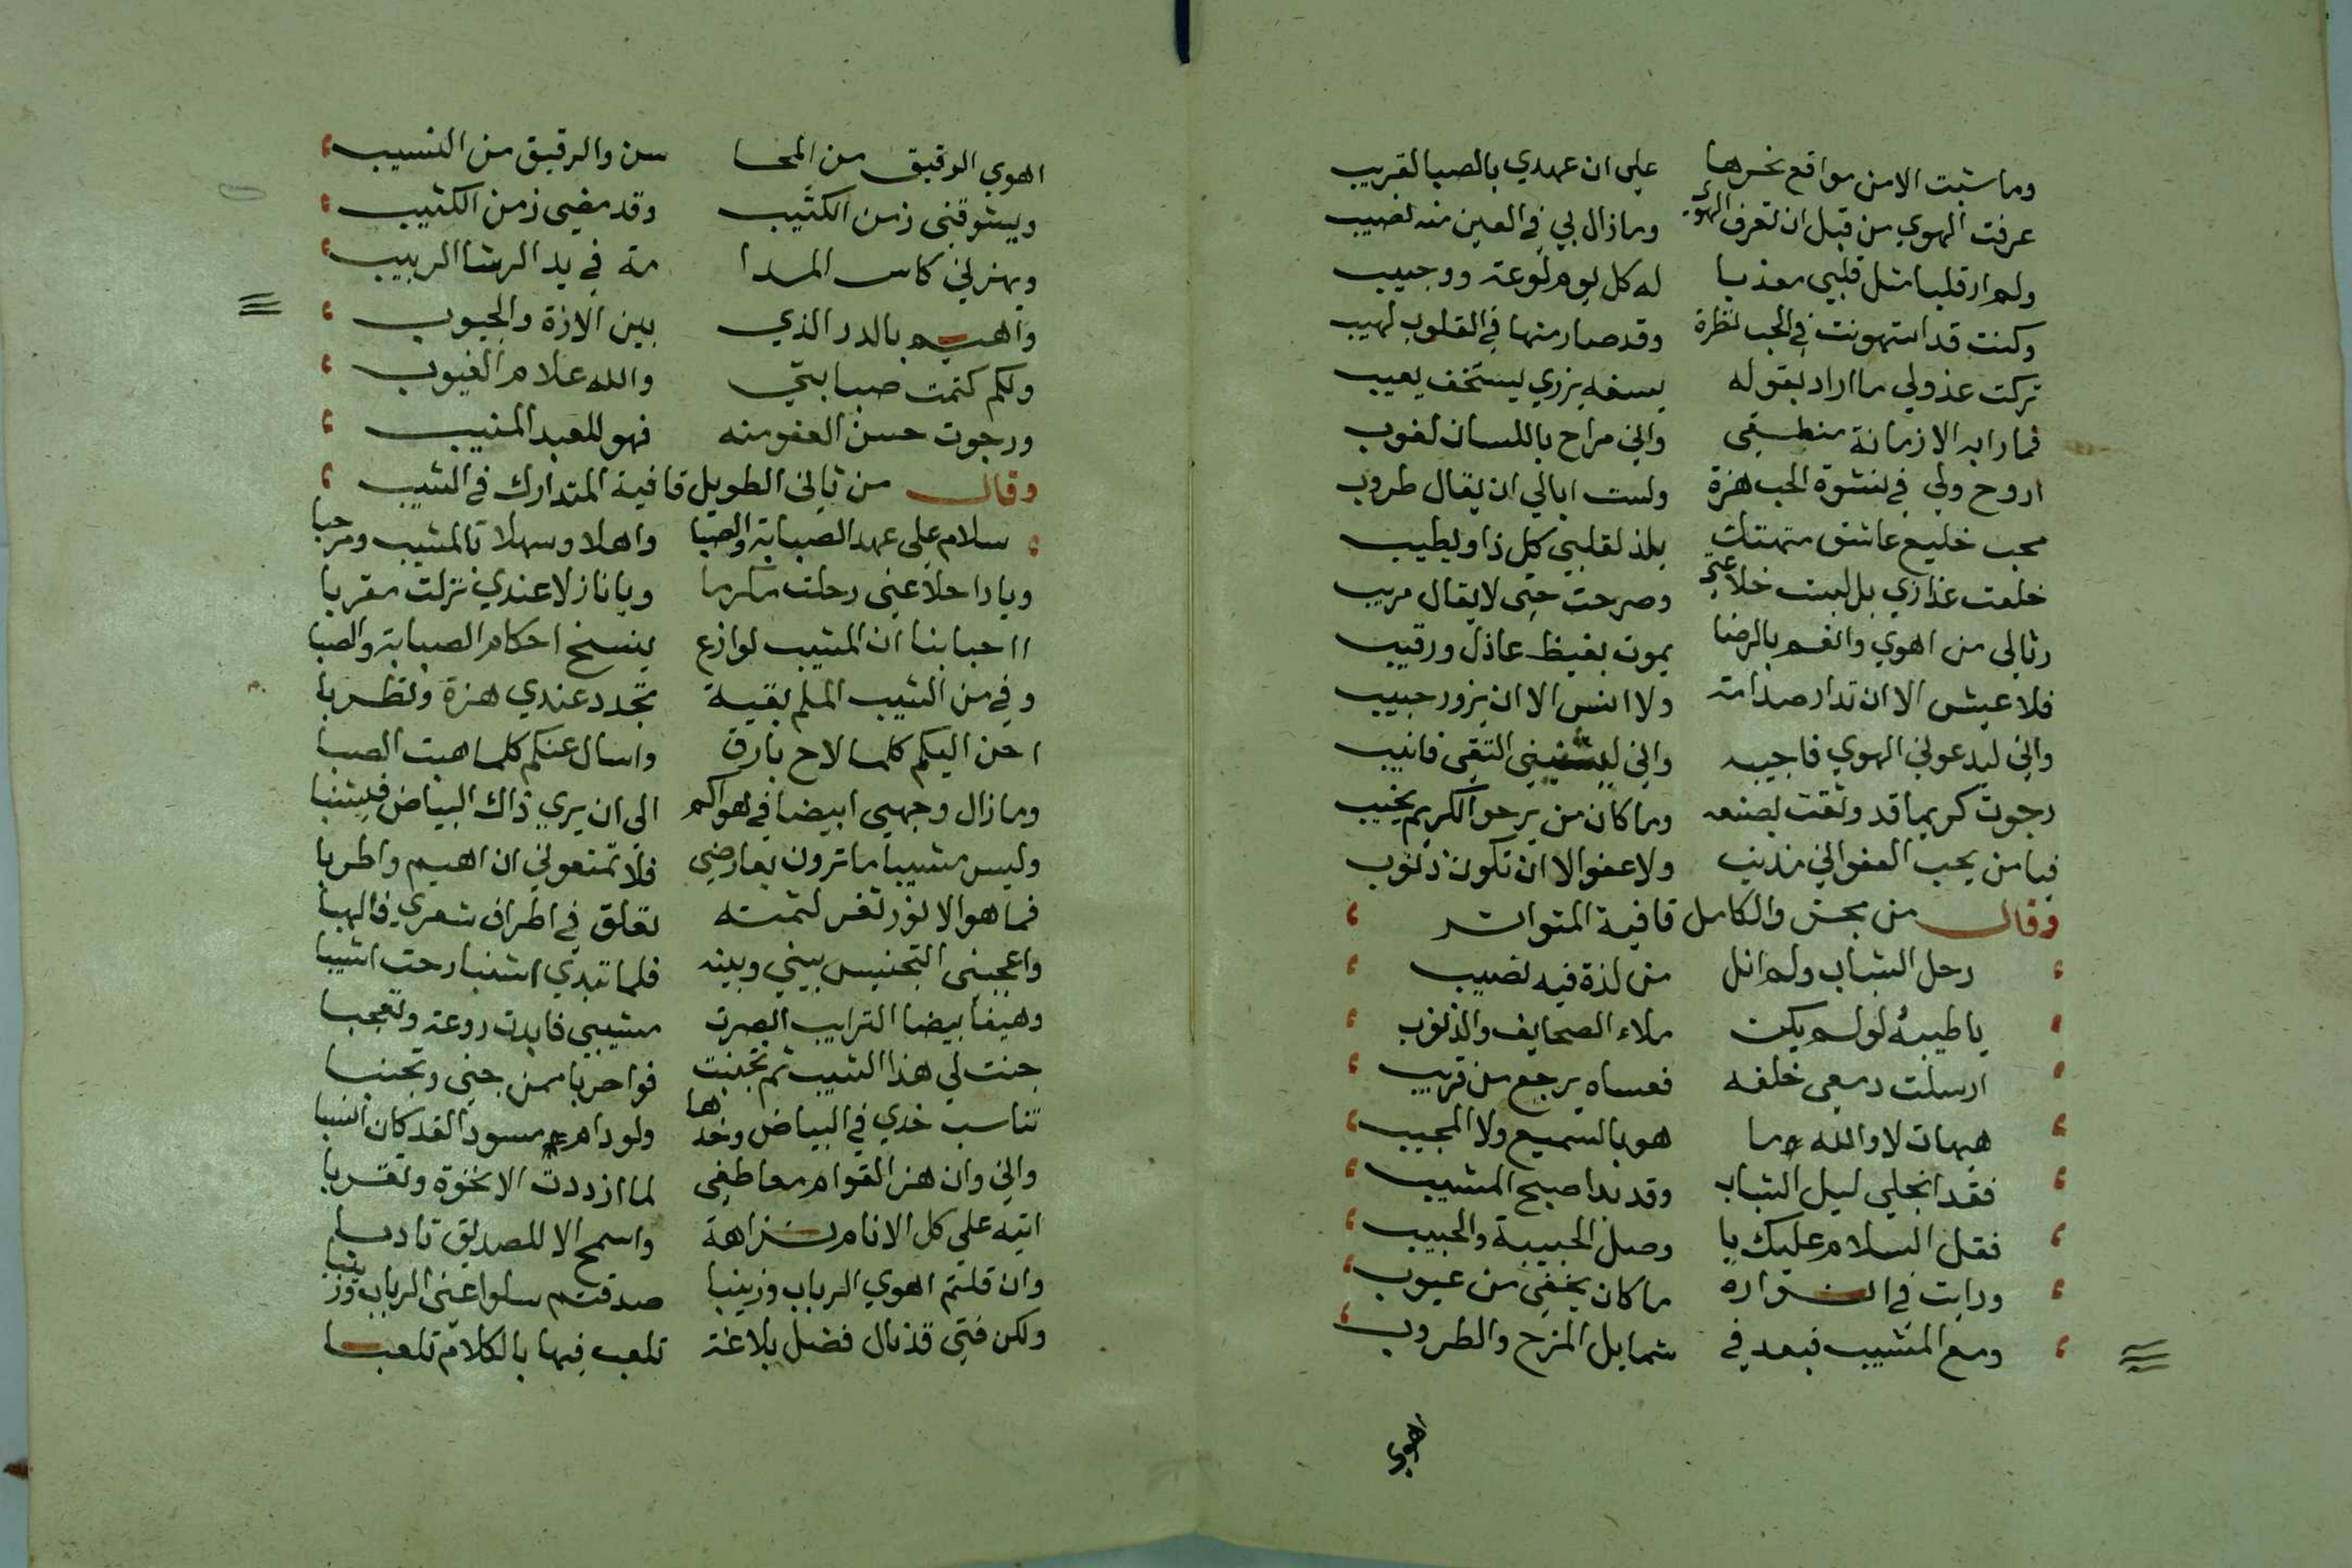 وما شبت الا من مواقع نحرها على ان عهدي بالصبا لقريب
عرفت الهوي من قبل ان تعرف الهوي وما زال بي في العين منه نصيب
ولم ار قلبا مثل قلبي معذبا له كل يوم لوعة ووجيب
وكنت قد استهونت في الحب نظرة وقد صار منها في القلوب لهيب
تركت عذولي ما اراد بقوله يسفه يزري يستخف يعيب
فما رابه الا زمانة منطقي واني مزاح باللسان لعوب
اروح ولي في نشوة الحب هزة ولست ابالي ان يقال طروب
محب خليع عاشق متهتك يلذ لقلبي كل ذا ويطيب
خلعت عذاري بل لبست خلاعتي وصرحت حتى لا يقال مريب
وفا لي من اهوي وانعم بالرضا يموت بغيظ عاذل ورقيب
فلا عيش الا ان تدار مدامة ولا انس الا ان يزور حبيب
واني ليدعوني الهوي فاجيبه واني ليثنيني التقى فانيب
رجوت كريما قد وثقت بصنعه وما كان من يرجو الكريم يخيب
فيا من يحب العفو اني مذنب ولا عفو الا ان تكون ذنوب
وقال من مجزو الكامل قافية المتواتر
رحل الشباب ولم انل من لذة فيه نصيب
يا طيبه لو لم يكن ملاء الصحايف والذنوب
ارسلت دمعي خلفه فعساه يرجع من قريب
هيهات لا والله ما هو بالسميع ولا المجيب
فقد انجلي ليل الشباب وقد بدا صبح المشيب
فقل السلام عليك يا وصل الحبيبة والحبيب
ورايت في انواره ما كان يخفى من عيوب
ومع المشيب فبعد في شمايل المزح والطروب
اهوي
اهوي الدقيق من المحا سن والرقيق من النسيب
ويشوقني زمن الكثيب وقد مضى زمن الكثيب
ويهزني كاس المدا مة في يد الرشا الربيب
واهيم بالدر الذي بين الازرة والجيوب
ولكم كتمت صبابتي والله علام الغيوب
ورجوت حسن العفو منه فهو للعبد المنيب
وقال من ثاني الطويل قافية المتدارك في الشيب
سلام على عهد الصبابة والصبا واهلا وسهلا بالمشيب ومرحبا
ويا راحلا عني رحلت مكرما ويا نازلا عندي نزلت مقربا
ااحبابنا ان المشيب لوازع ينسخ احكام الصبابة والصبا
وفي من الشيب الملم بقية تجدد عندي هزة وتطربا
احن اليكم كلما لاح بارق واسال عنكم كلما هبت الصبا
وما زال وجهي ابيضا في هواكم الى ان يري ذاك البياض فشيبا
وليس مشيبا ما ترون بعارضي فلا تمنعوني ان اهيم واطربا
فما هو الا نور ثغر لثمته تعلق في اطراف شعري فالهبا
واعجبني التجنيس بيني وبينه فلما تبدي اشنبا رحت اشيبا
وهيفا بيضا الترايب ابصرت مشيبي فابدت روعة وتعجبا
جنت لي هذا الشيب ثم تجنبت فواحربا ممن جنى وتجنبا
تناسب خدي في البياض وخدها ولو دام مسود الغد كان انسبا
واني وان هز القوام معاطفي لما ازددت الا نخوة وتقربا
اتيه على كل الانام نزاهة واسمح الا للصديق تادبا
وان قلتم اهوي الرباب وزينبا صدقتم سلوا عني الرباب وزينبا
ولكن فتى قد نال فضل بلاغة تلعب فيها بالكلام تلعبا